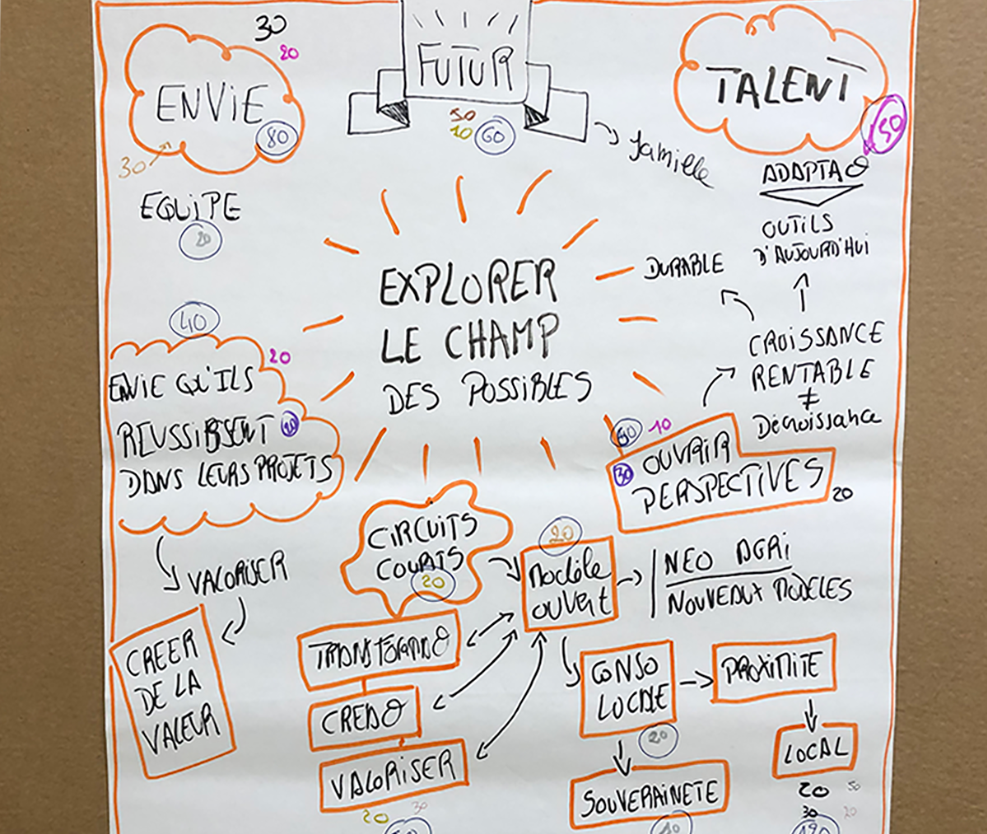 30
20
ENVIE
80
30
EQUIPE
20
FUTUR
50
10
60
famille
TALENT
50
ADAPTAO
OUTILS
D'AUJOURD'HUI
DURABLE
CROISSANCE
RENTABLE
≠
Décroissance
EXPLORER
LE CHAMP
DES POSSIBLES
40
20
ENVIE QU'ILS
REUSSISSENT
DANS LEURS PROJETS
VALORISER
CREER
DE LA
VALEUR
60
10
30
OUVRIR
PERSPECTIVES
20
CIRCUITS
COURTS
20
20
Modèle
ouvert
NEO AGRI
NOUVEAUX MODELES
TRANSFORMAO
CREAO
VALORISER
20
30
CONSO
LOCALE
20
PROXIMITE
LOCAL
20
50
30
20
SOUVERAINETE